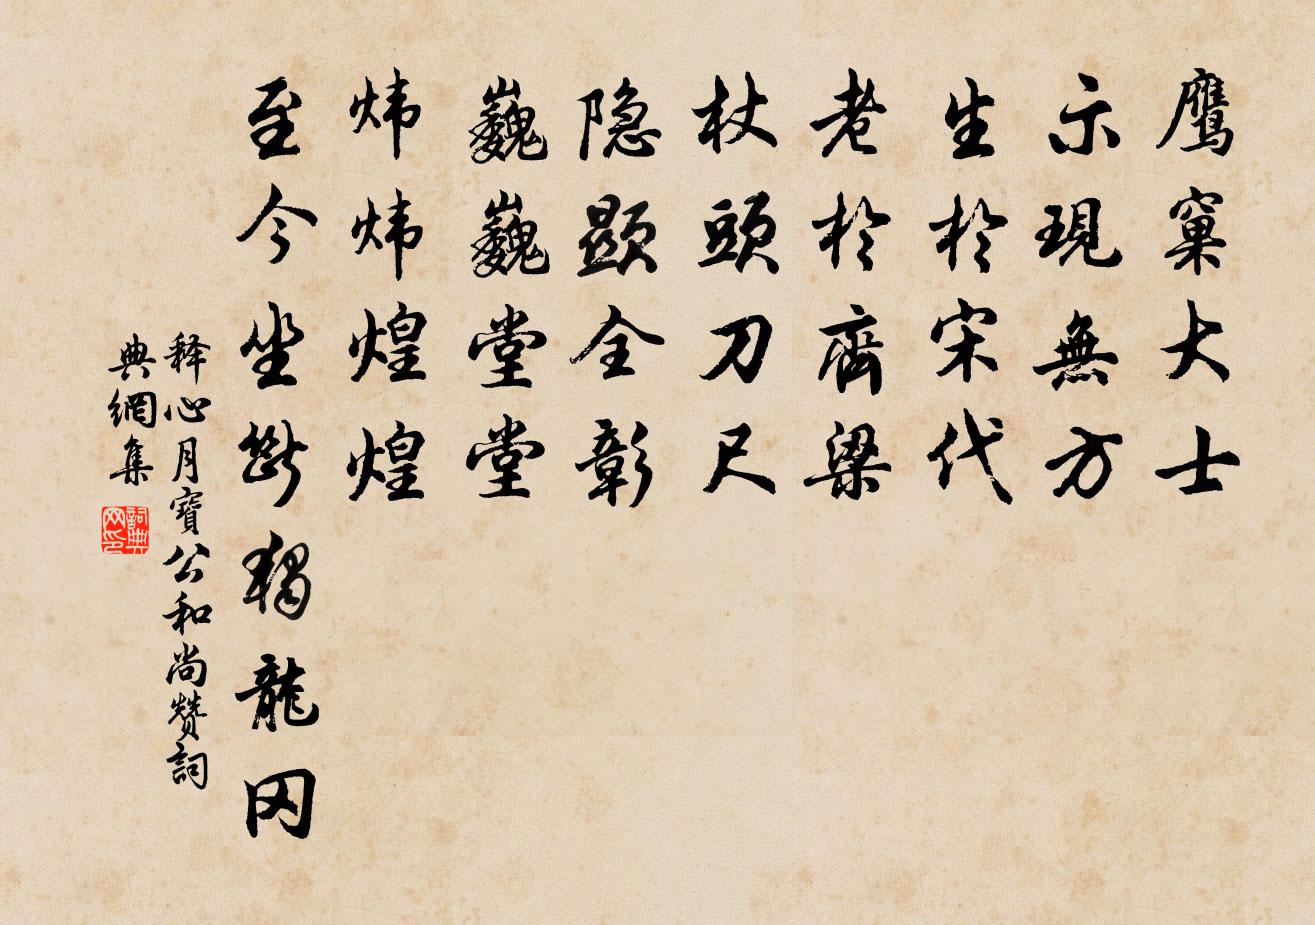 鹰窠大士
示現無方
生於宋代
老於齊梁
杖頭刀尺
隐顯全彰
巍巍堂堂
炜炜煌煌
至今坐断独龍冈
释心月寶公和尚赞詞
典網集
詞典网印